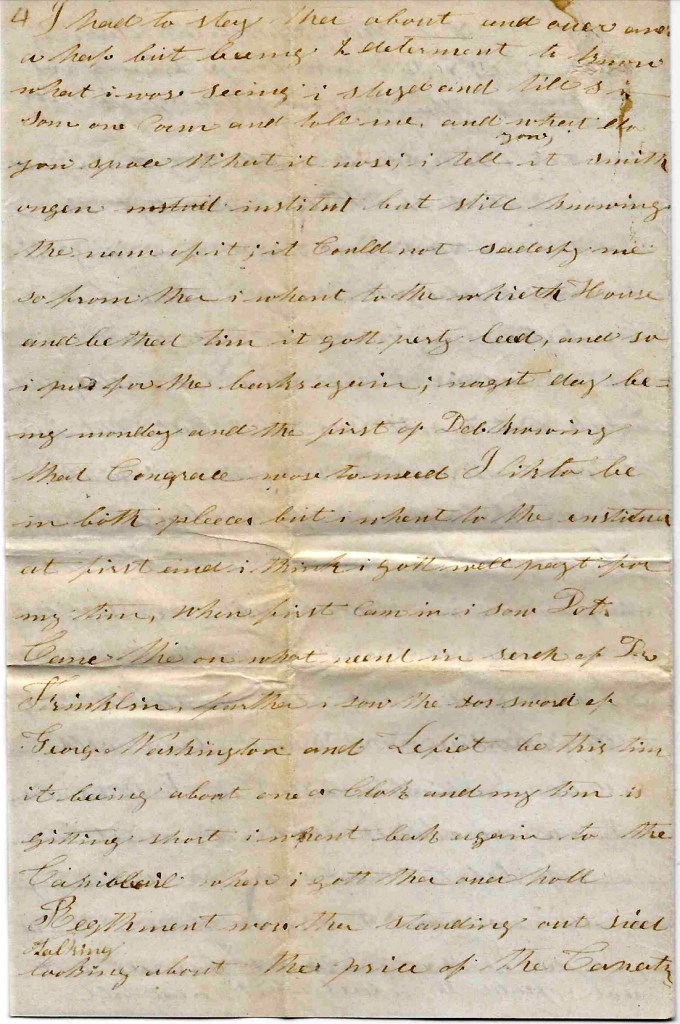 4 I had to stay ther about and ouer and
a half but being determent to know
what i wose seeing i stayd and till
som one Cam and told me, and what do
you, 
you spose What it wose, i tell it smith
ongen institut but still knowing
the nam of it; it Could not sadesfy me
so from ther i whent to the whieth House
and be that tim it gott perty leed, and so
i put for the barks again; nagst day be=
ing monday and the first of Deb knowing
that Congrace wose to meed I lik to be
in both pleeces but i whent to the institut
at first and i think i gott well payt for
my tim, when first Cam in i sow Dotr
Cane the on what went in serch of Sr
Frinklin, farther i sow the sword of
Georg Washington and Lefiet be this tim
it being about one a Clok and my tim is
gitting short i whent bek again to the
when i gott ther ouer holl
Regthment wose ther standing out sied
talking
looking about the price of the